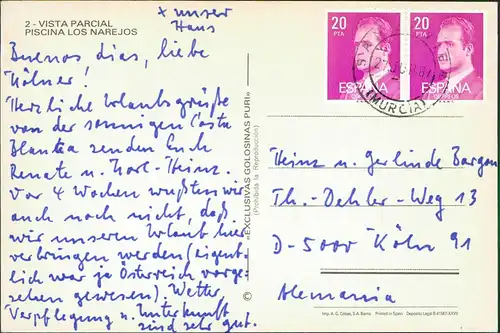 2 - VISTA PARCIAL
PISCINA LOS NAREJOS
x unser
Haus
Buenos dias, liebe
Kölner!
Herzliche Urlaubsgrüße
von der sonnigen Costa
Blanca senden Euch
Renate u. Karl-Heinz.
Vor 4 Wochen wußten wir
auch noch nicht, daß
wir unseren Urlaub hier
verbringen werden (eigent-
lich war ja Österreich vorge-
sehen gewesen). Wetter,
Verpflegung u. Unterkunft
sind sehr gut.
«EXCLUSIVAS GOLOSINAS PURI»
(Prohibida la Reproducción)
©
20
PTA
ESPAÑA
CORREOS
20
PTA
ESPAÑA
CORREOS
(MURCIA)
Heinz u. Gerlinde Bargon
Th.-Dehler-Weg 13
D-5000 Köln 91
Alemania
Imp. A. G. Catoas, S.A. Barna Printed in Spain Depósito Legal B 41567-XXVII